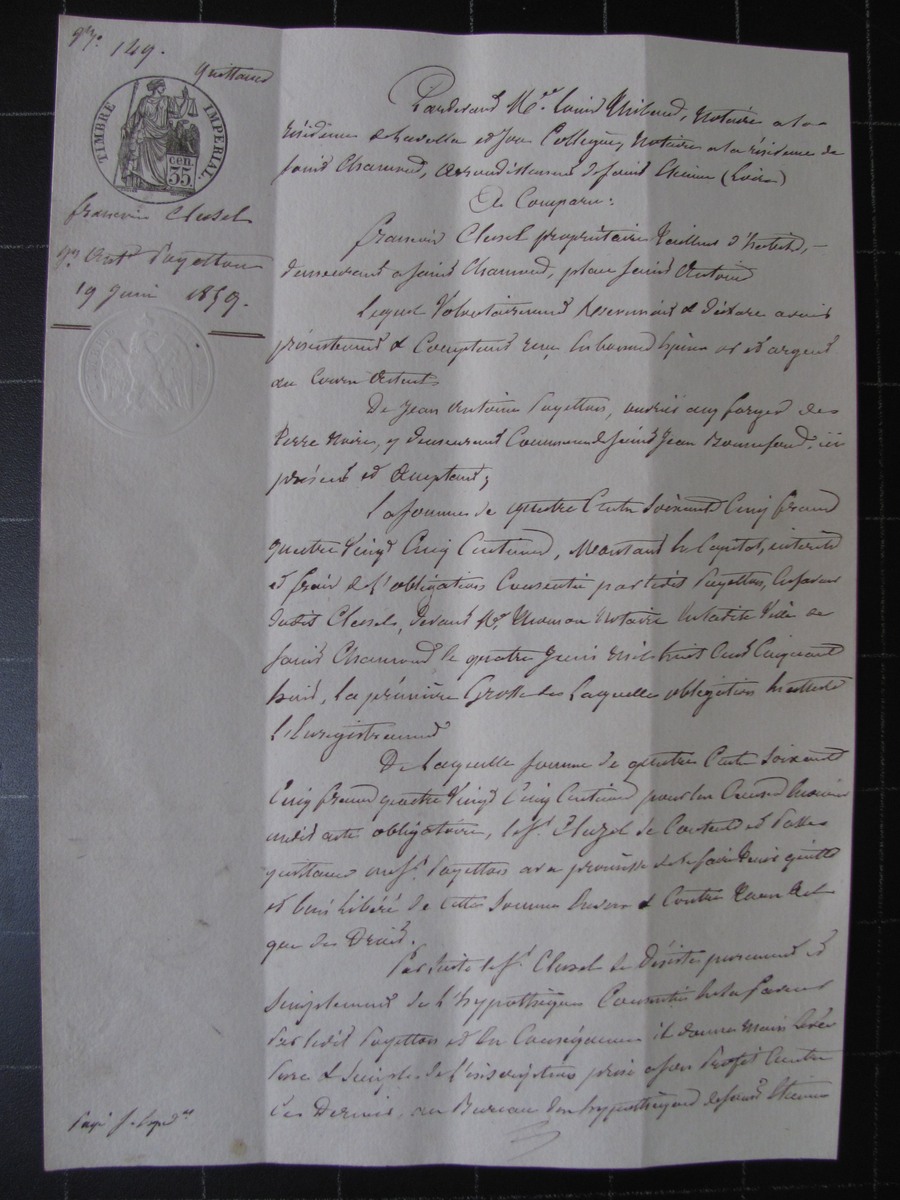 149.
quittance
TIMBRE IMPERIAL.
cen. 35.
françois Clusel
à Ant. Payetton
19 Juin 1859.
Pardevant Me. Louis, Notaire a la
résidence de et son Collegue, Notaire a la résidence de
Saint Chamond, arrondissement de Saint Etienne (Loire)
A Comparu:
françois Clusel propriétaire tailleur d'habits,
demeurant a Saint Chamond, place Saint Antoine
Lequel Volontairement Reconnait & déclare avoir
présentement & Comptant reçu en bonnes espèces or et argent
du Cours
De Jean Antoine Payetton, ouvrier aux forges de
Terre noire, y demeurant Commune de Saint Jean Bonnefond, ici
présent et acceptant;
La somme de quatre Cents Soixante Cinq francs
quatre Vingt Cinq Centimes, Montant en Capital, intérêts
et frais de l'obligation Consentie par ledit Payetton, en faveur
dudit Clusel, devant Me. Notaire en ladite Ville de
Saint Chamond le quatre Juin mil huit Cent Cinquante
huit, la première Grosse de Laquelle obligation
L'Enregistrement
De Laquelle somme de quatre Cents Soixante
Cinq francs quatre Vingt Cinq Centimes pour les Causes
audit acte obligatoire, le Sr. Cluzel se Contente et Passe
quittance au Sr. Payetton avec promesse de le faire tenir quitte
et bien libéré de cette Somme Envers & Contre tous
que de Droit.
Par Suite le Sr. Clusel se Désiste purement et
Simplement de l'hypothèque Consentie en sa faveur
Par ledit Payetton et en Conséquence il donne main levée
Pure & Simple de l'inscription prise a son Profit Contre
Ce Dernier, au Bureau des hypothèques de Saint Etienne